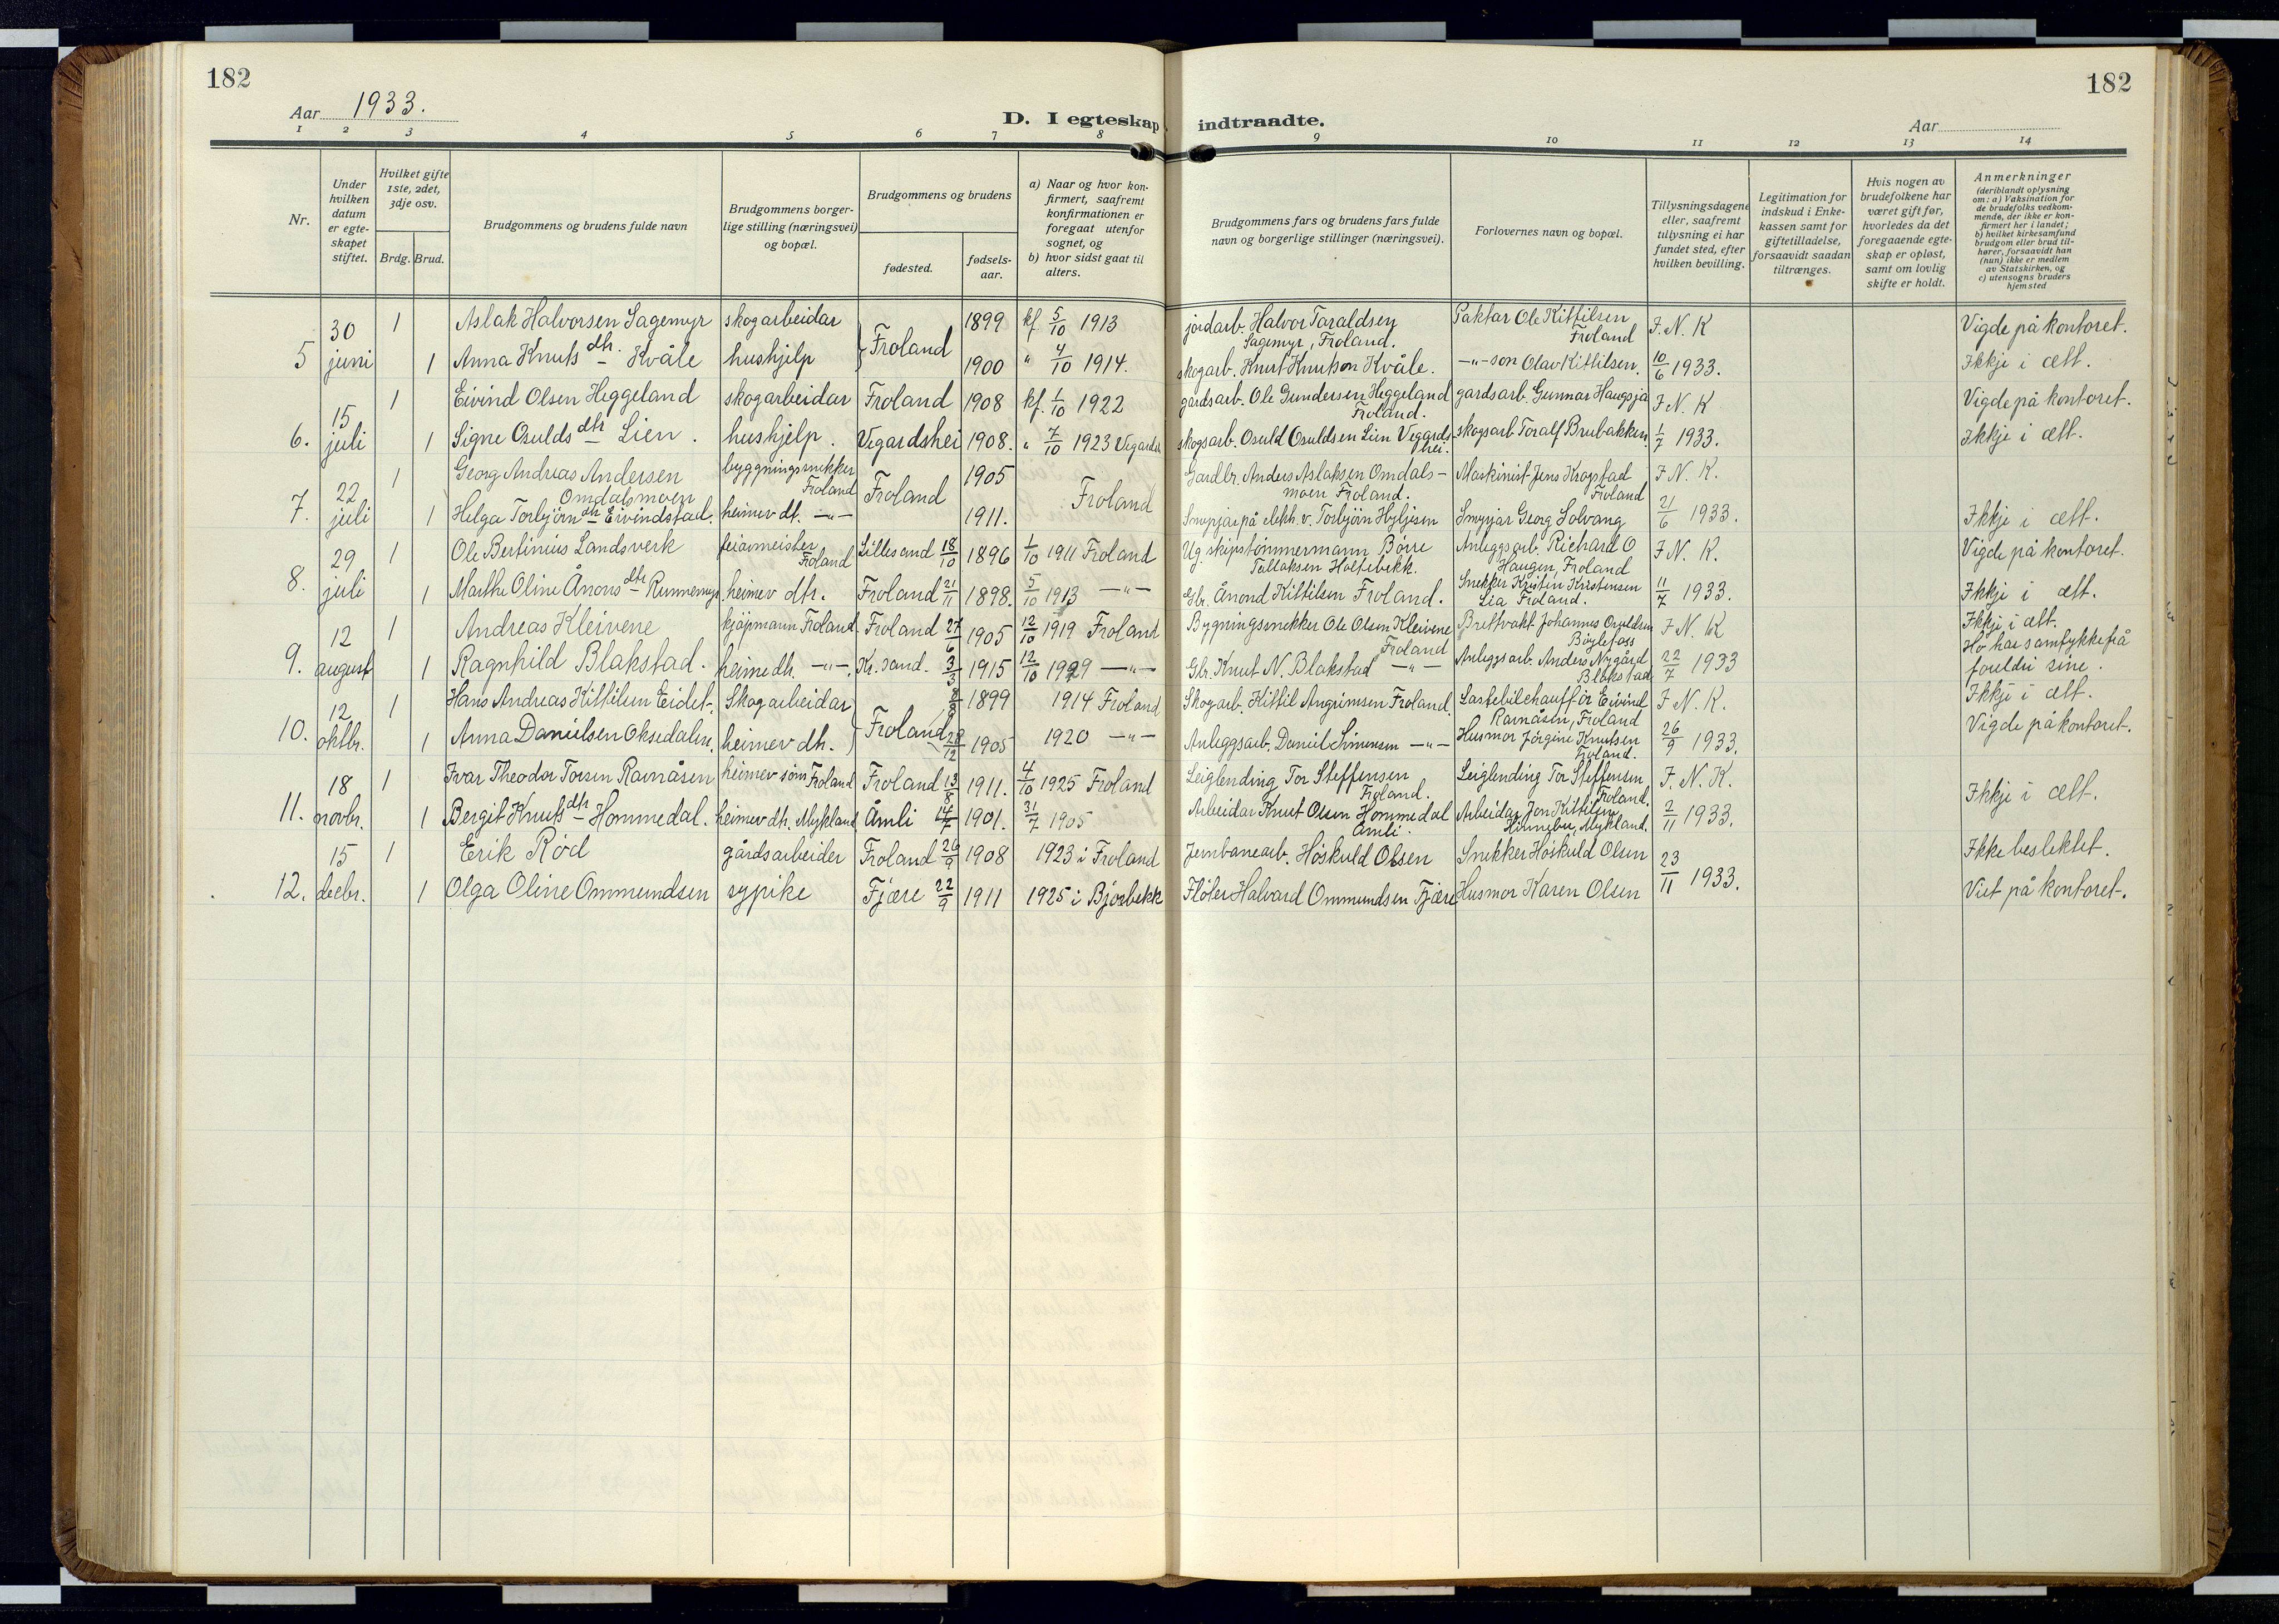 182
182
Aar 1933.
D. I egteskap indtraadte.
Aar
1 2 3 4 5 6 7 8 9 10 11 12 13 14
Nr.
Under hvilken datum er egte-skapet stiftet.
Hvilket gifte 1ste, 2det, 3dje osv.
Brdg. Brud.
Brudgommens og brudens fulde navn
Brudgommens borger-lige stilling (næringsvei) og bopæl.
Brudgommens og brudens
fødested.
fødsels-aar.
a) Naar og hvor kon-firmert, saafremt konfirmationen er foregaat utenfor sognet, og
b) hvor sidst gaat til alters.
Brudgommens fars og brudens fars fulde navn og borgerlige stillinger (næringsvei).
Forlovernes navn og bopæl.
Tillysningsdagene eller, saafremt tillysning ei har fundet sted, efter hvilken bevilling.
Legitimation for indskud i Enke-kassen samt for giftetilladelse, forsaavidt saadan tiltrænges.
Hvis nogen av brudefolkene har været gift før, hvorledes da det foregaaende egte-skap er opløst, samt om lovlig skifte er holdt.
Anmerkninger (deriblandt oplysning om: a) Vaksination for de brudefolks vedkom-mende, der ikke er kon-firmert her i landet; b) hvilket kirkesamfund brudgom eller brud til-hører, forsaavidt han (hun) ikke er medlem av Statskirken, og c) utensogns bruders hjemsted
30 1 Aslak Halvorsen Sagemyr skogarbeidar } Froland 1899 kf. 5/10 1913 jordarb. Halvor Taraldsen Sagemyr, Froland. Paktar Ole Kittilsen Froland F. N. K Vigde på kontoret.
5 juni 1 Anna Knuts dtr. Kvåle hushjelp 1900 " 4/10 1914. skogarb. Knut Knutson Kvåle. —"— son Olav Kittilsen. 10/6 1933. Ikkje i ætt.
15 1 Eivind Olsen Heggeland skogarbeidar Froland 1908 kf. 1/10 1922 gardsarb. Ole Gundersen Heggeland Froland. gardsarb. Gunnar Haugsjå F. N. K Vigde på kontoret.
6. juli 1 Signe Osulds dtr Lien. hushjelp. Vegardshei 1908. " 7/10 1923 Vegardsh skogsarb. Osuld Osuldsen Lien Vegardshei. skogsarb Toralf Brubakken. 1/7 1933. Ikkje i ætt.
22 1 Georg Andreas Andersen Omdalsmoen byggningssnekker Froland Froland 1905 Froland Gardbr. Anders Aslaksen Omdals-moen Froland. Maskinist Jens Krogstad Froland F. N. K.
7. juli 1 Helga Torbjörn dtr Eivindstad. heimev dt. —"— 1911. Torbjörn Hyljisen Georg Solvang 21/6 1933. Ikkje i ætt.
29 1 Ole Bertinius Landsverk feiarmeister Froland Lillesand 18/10 1896 1/10 1911 Froland Ug. skipstömmermann Börre Tallaksen Holtebekk. Anleggsarb. Richard O Haugen, Froland F. N. K. Vigde på kontoret.
8. juli 1 Marthe Oline Ånons dtr Runnemyr. heimev dtr. Froland 21/11 1898. 5/10 1913 —"— Gbr. Ånond Kittilsen Froland. Snekker Kristin Kristensen Lia Froland. 11/7 1933. Ikkje i ætt.
12 1 Andreas Kleivene kjöpmann Froland. Froland 27/6 1905 12/10 1919 Froland Bygningssnekker Ole Olsen Kleivene Froland Johannes Osuldsen Böylefoss F. N. K Ikkje i ætt.
9. august 1 Ragnhild Blakstad. heime dt. —"—. Kr. sand. 3/3 1915 12/10 1929 —"— Gbr. Knut N. Blakstad —"— Anleggsarb. Anders Nygård Blakstad 22/7 1933 Ho har samtykke frå foreldri sine.
12 1 Hans Andreas Kittilsen Eidet. Skogarbeidar } Froland 1899 1914 Froland Skogarb. Kittil Angrimsen Froland. Lastebilchaufför Eivind Ramåsen, Froland F. N. K. Ikkje i ætt.
10. oktbr. 1 Anna Danielsen Oksedalen. heimev dh. 28/12 1905 1920 —"— Anleggsarb. Daniel Simensen —"— Husmor Jörgine Knutsen Froland. 26/9 1933. Vigde på kontoret.
18 1 Ivar Theodor Torsen Ramåsen heimev söns Froland Froland 13/8 1911. 4/10 1925 Froland Leiglending Tor Steffensen Froland. Leiglending Tor Steffensen Froland. F. N. K.
11. novbr. 1 Bergit Knuts dtr Hommedal. heimev dt. Mykland Åmli 14/7 1901. 31/7 1905 Arbeidar Knut Olsen Hommedal Åmli. Arbeidar Jon Kittilsen Hinnebu, Mykland. 2/11 1933. Ikkje i ætt.
15 1 Erik Röd gårdsarbeider Froland 26/9 1908 1923 i Froland Jernbanearb. Höskuld Olsen Snekker Höskuld Olsen 23/11 1933. Ikke beslektet.
12. decbr. 1 Olga Oline Ommundsen sypike Fjære 22/9 1911 1925 i Bjorbekk Flöter Halvard Ommundsen Fjære Husmor Karen Olsen Viet på kontoret.